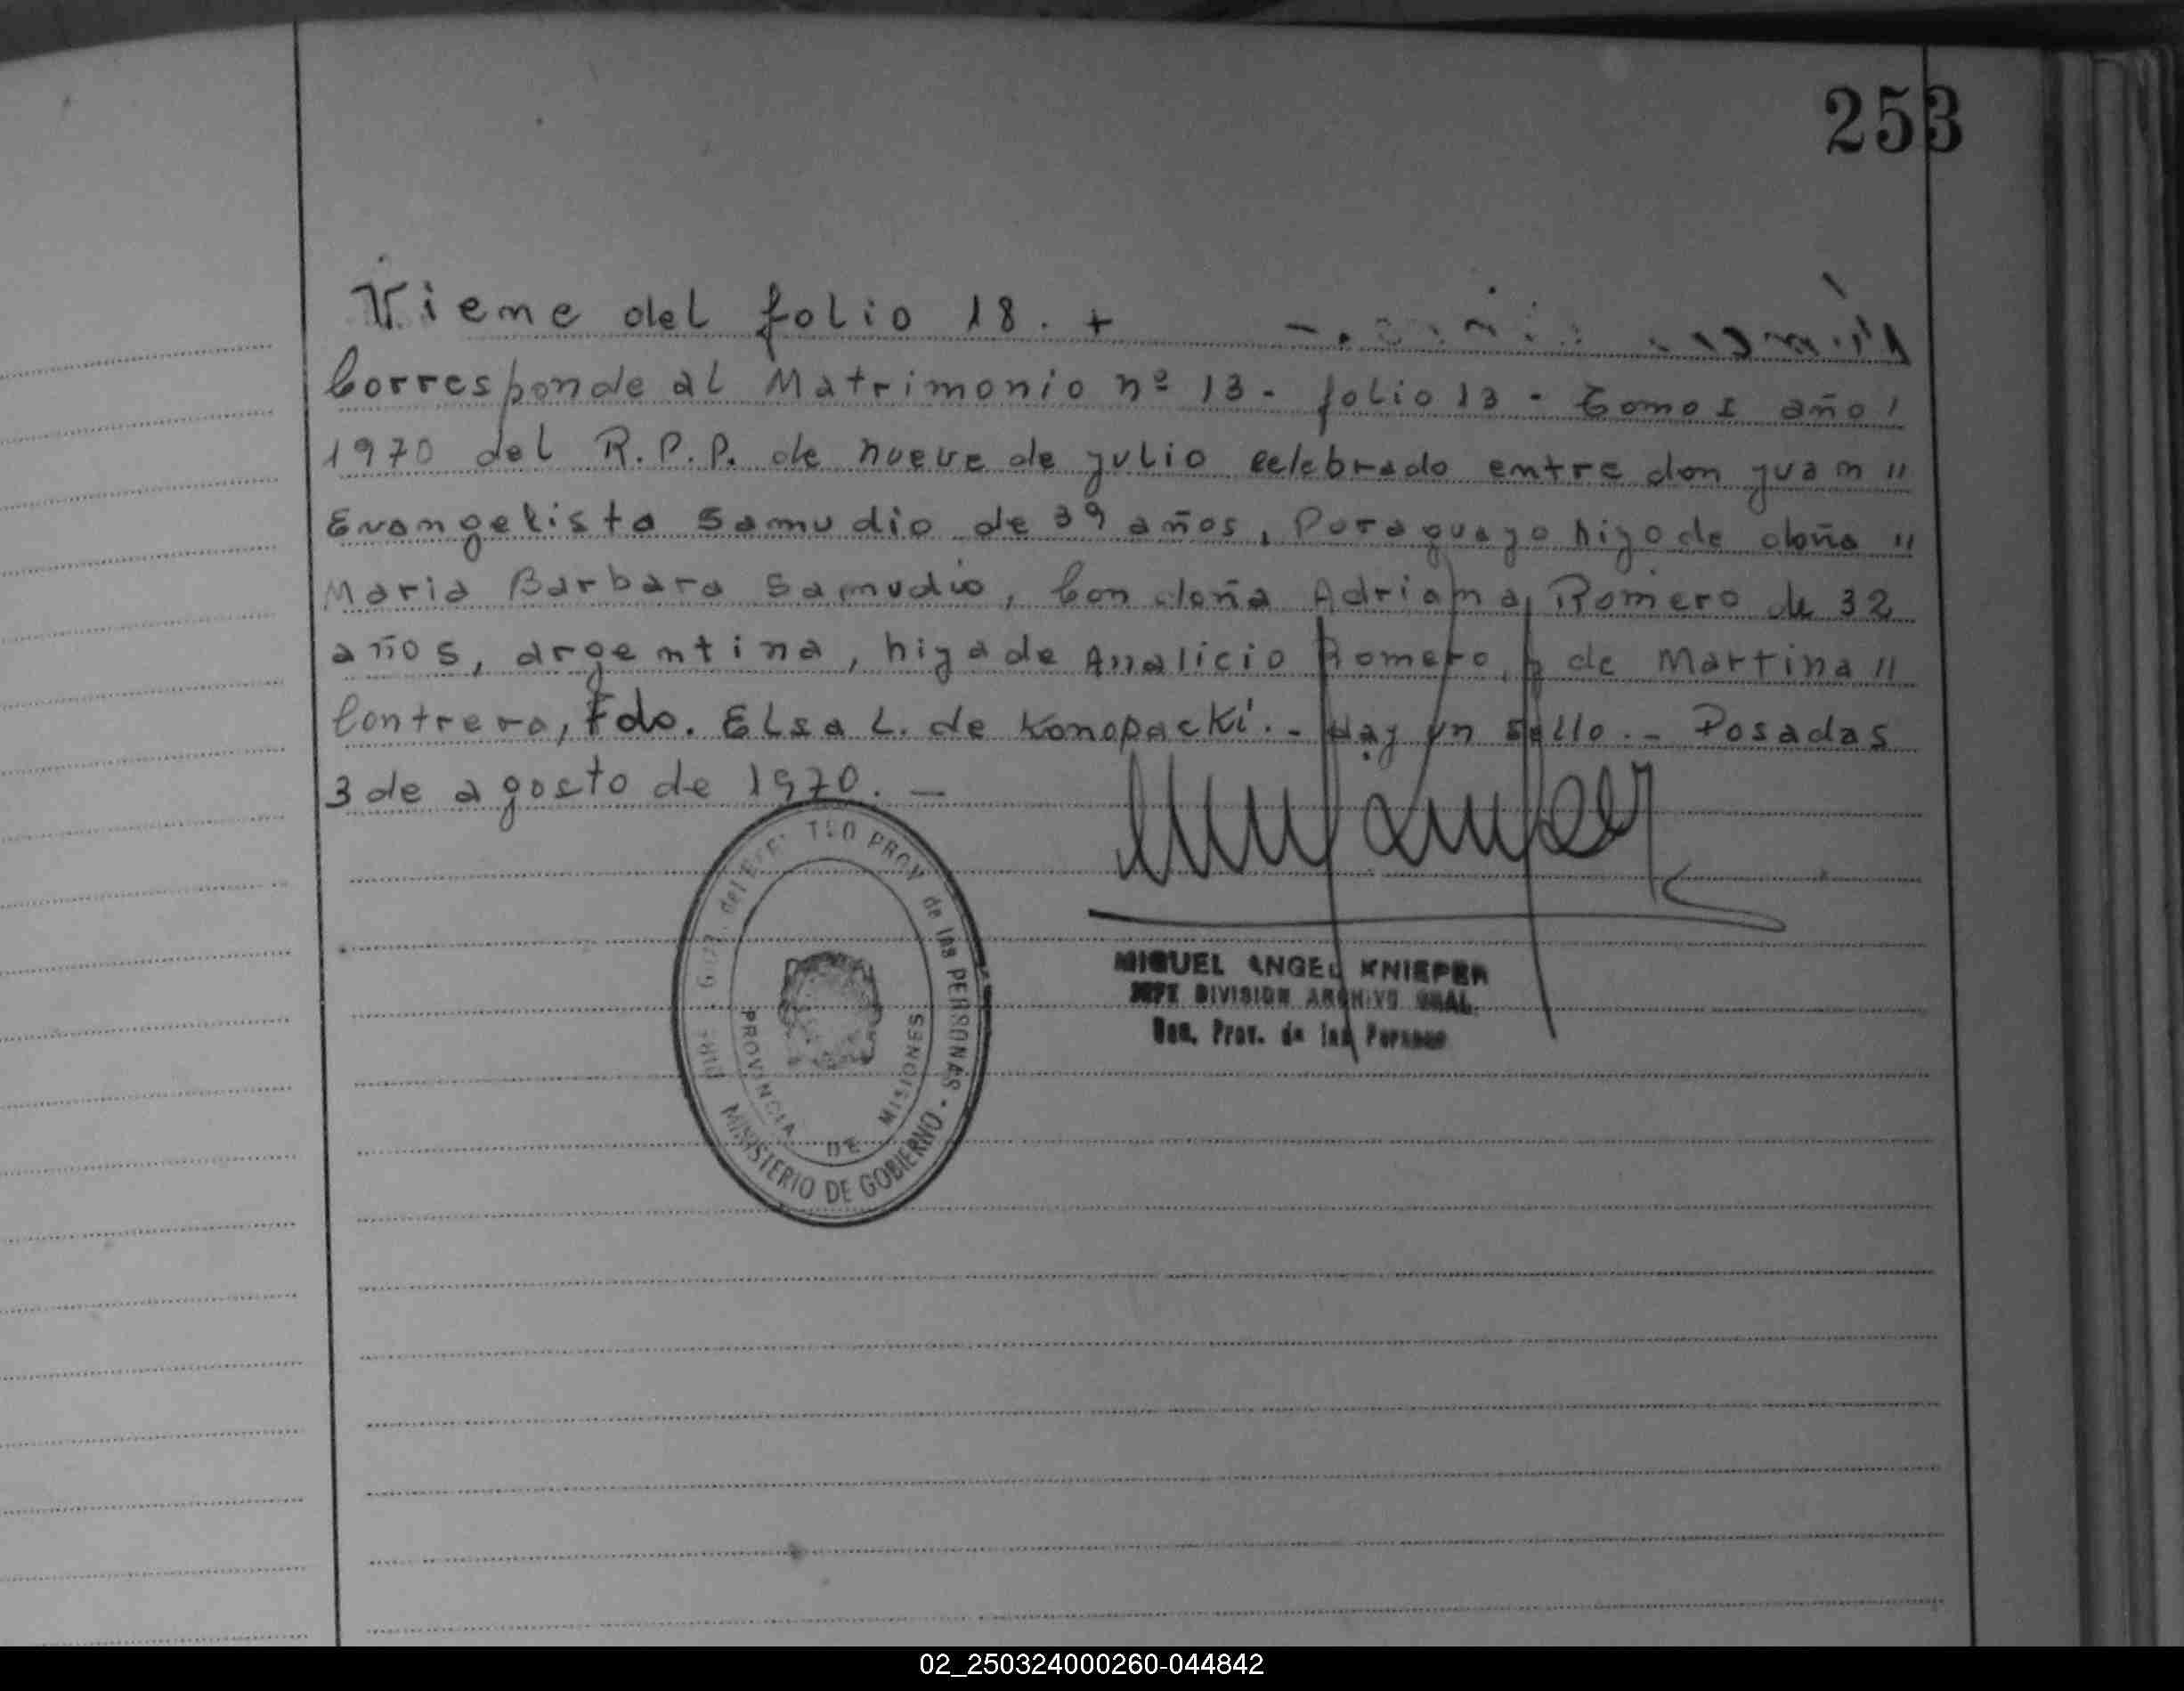 253
Viene del folio 18. +
Corresponde al Matrimonio nº 13 - folio 13 - Tomo I año /
1970 del R.P.P. de nueve de julio celebrado entre don juan //
Evangelista Samudio de 39 años, Paraguayo hijo de doña //
Maria Barbara Samudio, Con doña Adriana Romero de 32
años, argentina, hija de Analicio Romero y de Martina //
Contrera, Fdo. Elsa L. de Konopacki. - Hay un sello. - Posadas
3 de agosto de 1970. —
PROV de las PERSONAS - MINISTERIO DE GOBIERNO
PROVINCIA DE MISIONES
MIGUEL ANGEL KNIEPER
JEFE DIVISION ARCHIVO GRAL.
Prov. de las Personas
02_250324000260-044842